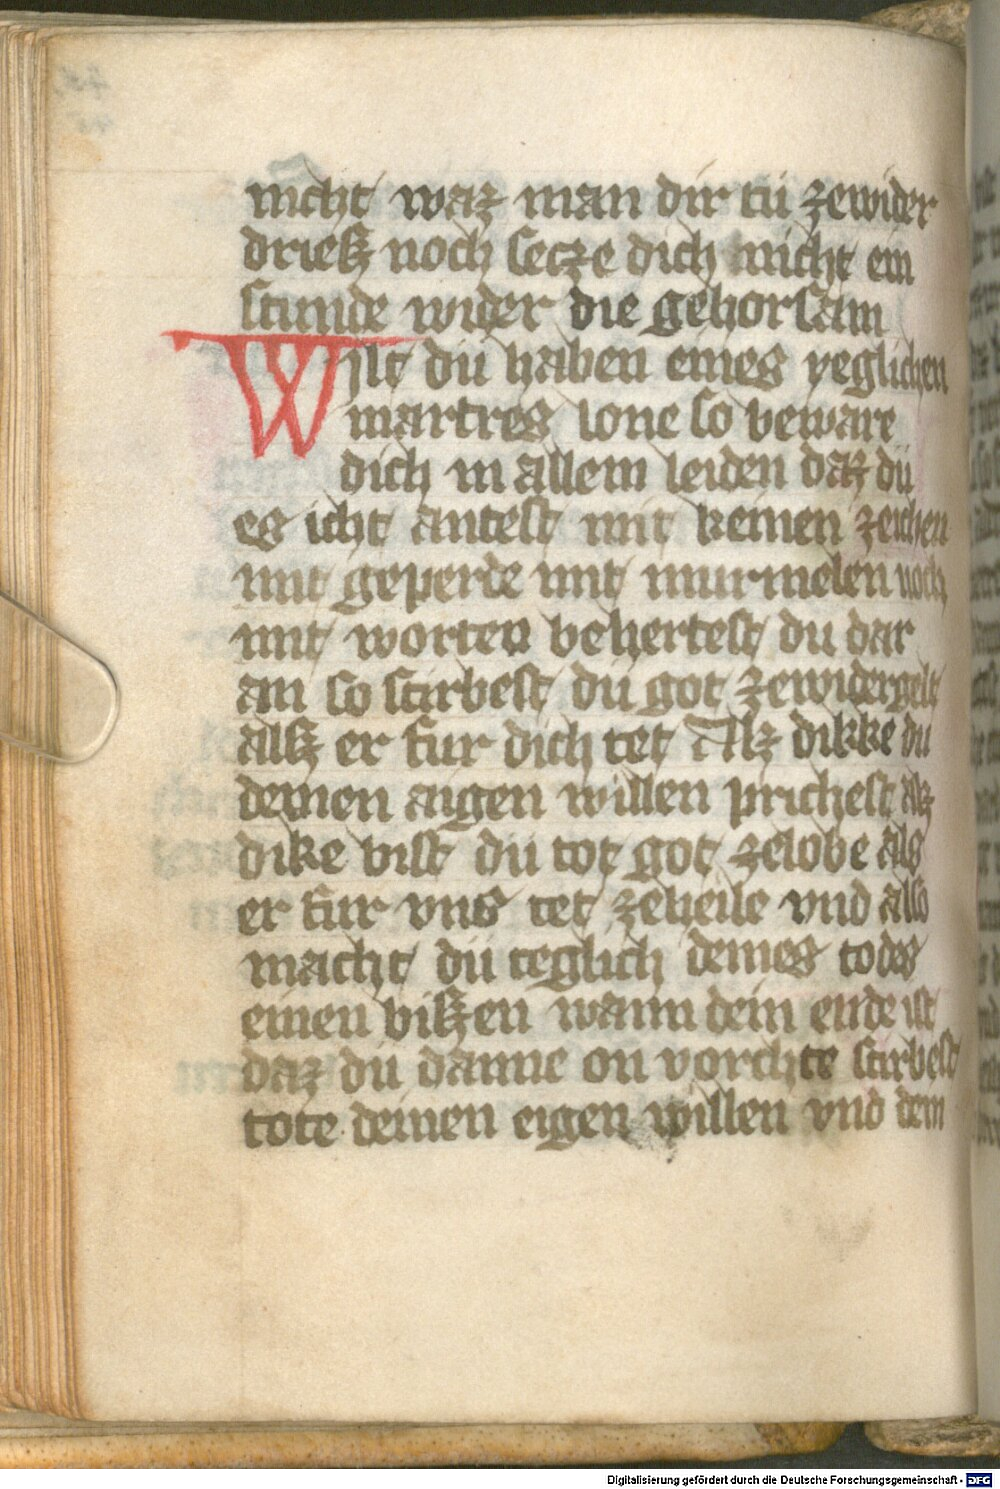 nicht waz man dir tü zewider
drieß noch secze dich nicht ein
stunde wider die gehorsam
Wilt dü haben eines yeglichen
martres lone so beware
dich in allem leiden daz dü
es icht antest mit keinen zeichen
mit geperde mit murmelen noch
mit worten behertest du dar
an so stirbest dü got zewidergelt
allß er fur dich tet Alz dikke du
deinen aigen willen prichest alz
dike bist dü tot got zelobe als
er fur vns tet zeheile vnd also
macht dü teglich deines todes
einen bißen wann dein ende ist
daz dü danne on vorchte stirbest
tote deinen eigen willen vnd dem
Digitalisierung gefördert durch die Deutsche Forschungsgemeinschaft - DFG